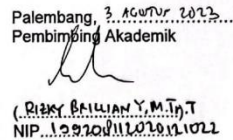 Palembang, 3 AGUSTUS 2023
Pembimbing Akademik
(RIZKY BRILLIAN Y, M.Tr.T
NIP. 199208112020121022